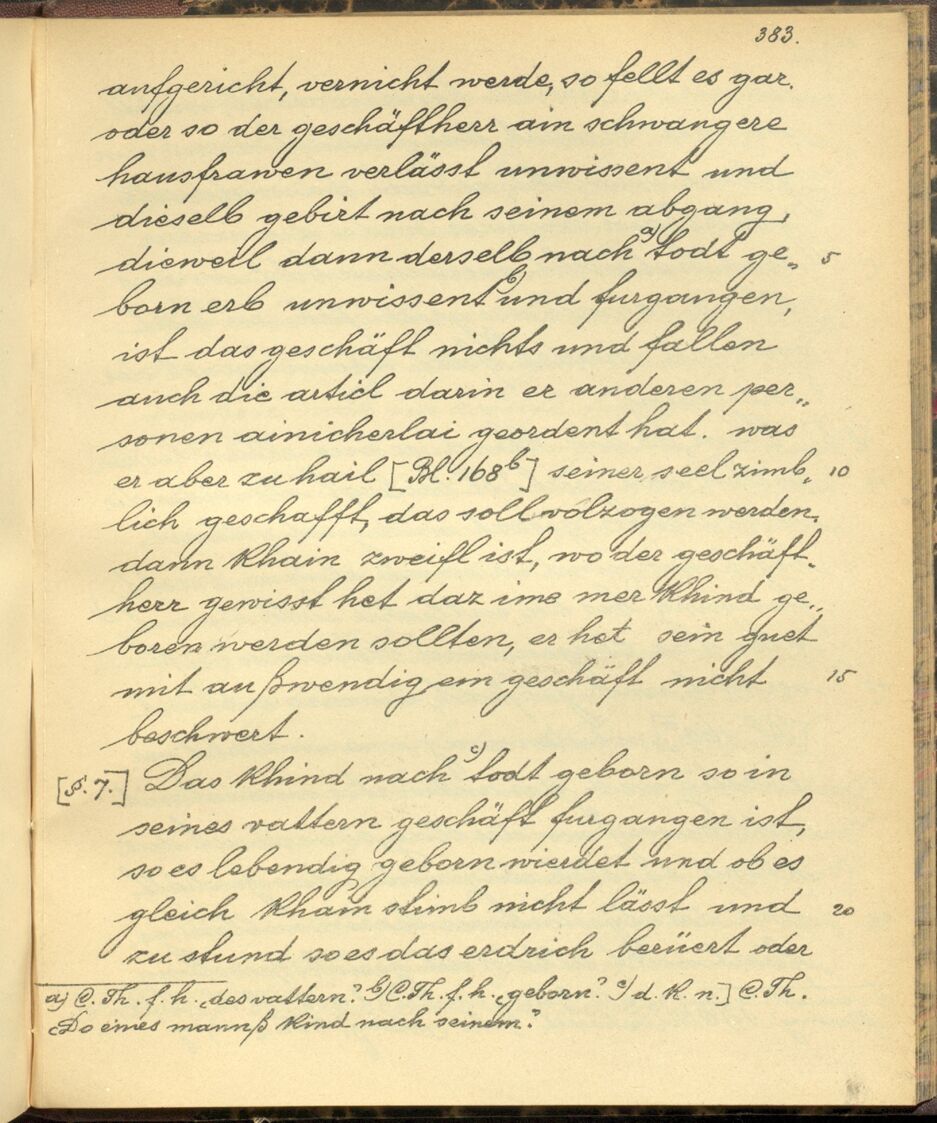 383.
aufgericht, vernicht werde, so fellt es gar.
oder so der geschäftherr ain schwangere
hausfrawen verlässt unwissent und
dieselb gebirt nach seinem abgang,
dieweil dann derselb nach a) todt ge„ 5
born erb unwissent b) und furgangen,
ist das geschäft nichts und fallen
auch die articl darin er anderen per„
sonen ainicherlai geordent hat. was
er aber zu hail [Bl. 168b] seiner seel zimb„ 10
lich geschafft, das soll volzogen werden.
dann khain zweifl ist, wo der geschäft„
herr gewisst het daz ime mer khind ge„
boren werden sollten, er het sein guet
mit außwendigem geschäft nicht 15
beschwert.
[§. 7.] Das khind nach c) todt geborn so in
seines vattern geschäft furgangen ist,
so es lebendig geborn wierdet und ob es
gleich khain stimb nicht lässt und 20
zu stund so es das erdrich berüert oder
a) C. Th. f. h. „des vattern“. b) C. Th. f. h. „geborn“. c) d. k. n.] C. Th.
„Do eines mannß kind nach seinem“.